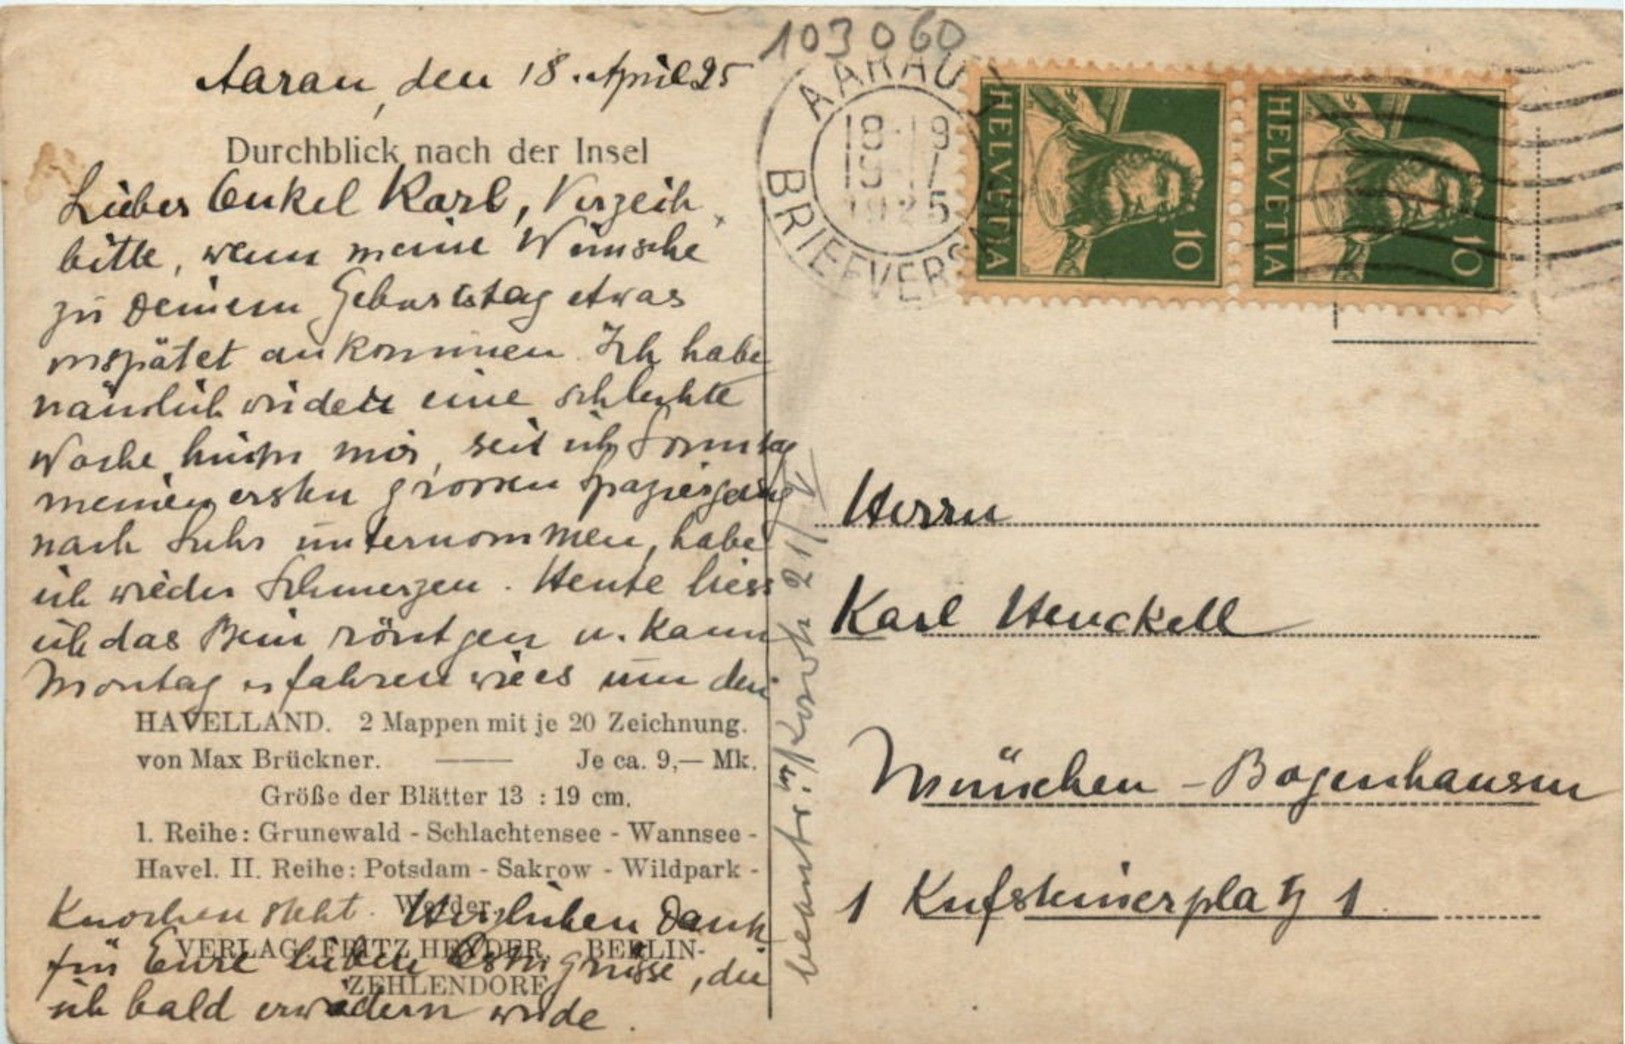 103060
Aarau, den 18. April 25
Durchblick nach der Insel
Lieber Onkel Karl, Verzeih
bitte, wenn meine Wünsche
zu Deinem Geburtstag etwas
verspätet ankommen. Ich habe
nämlich wieder eine schlechte
Woche hinter mir, seit ich Sonntag
meinen ersten grossen Spaziergang
nach Suhr unternommen, habe
ich wieder Schmerzen. Heute liess
ich das Bein röntgen u. kann
Montag erfahren wie es um den
HAVELLAND. 2 Mappen mit je 20 Zeichnung.
von Max Brückner. —— Je ca. 9,— Mk.
Größe der Blätter 13 : 19 cm.
1. Reihe: Grunewald - Schlachtensee - Wannsee -
Havel. II. Reihe: Potsdam - Sakrow - Wildpark -
Werder.
Knochen steht. Herzlichen Dank
VERLAG FRITZ HEYDER, BERLIN-
für Eure lieben Ostergrüsse, die
ZEHLENDORF
ich bald erwidern werde.
beantw.
AARAU
18-19
19. IV
1925
BRIEFVERS
HELVETIA
10
HELVETIA
10
Herrn
Karl Henckell
München - Bogenhausen
1 Kufsteinerplatz 1